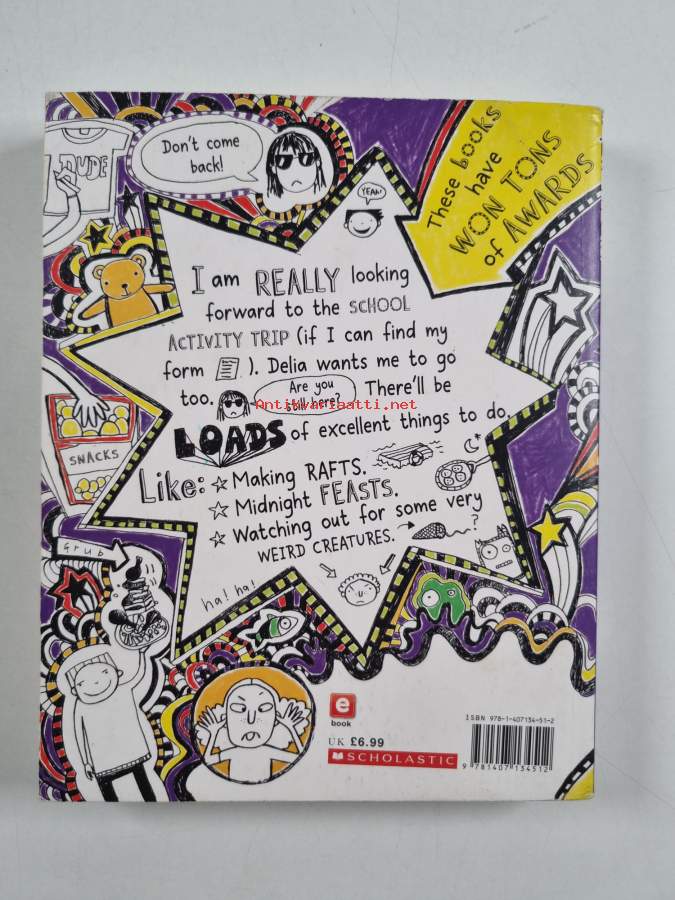 DUDE
Don't come
back!
YEAH!
These books
have
WON TONS
of AWARDS
I am REALLY looking
forward to the SCHOOL
ACTIVITY TRIP (if I can find my
form ). Delia wants me to go
too. Are you still here? There'll be
Antikvariaatti.net
LOADS of excellent things to do.
Like: ☆ Making RAFTS.
☆ Midnight FEASTS.
☆ Watching out for some very
WEIRD CREATURES.
?
SNACKS
Grub
ha! ha!
e
book
UK £6.99
SCHOLASTIC
ISBN 978-1-407134-51-2
9 781407 134512